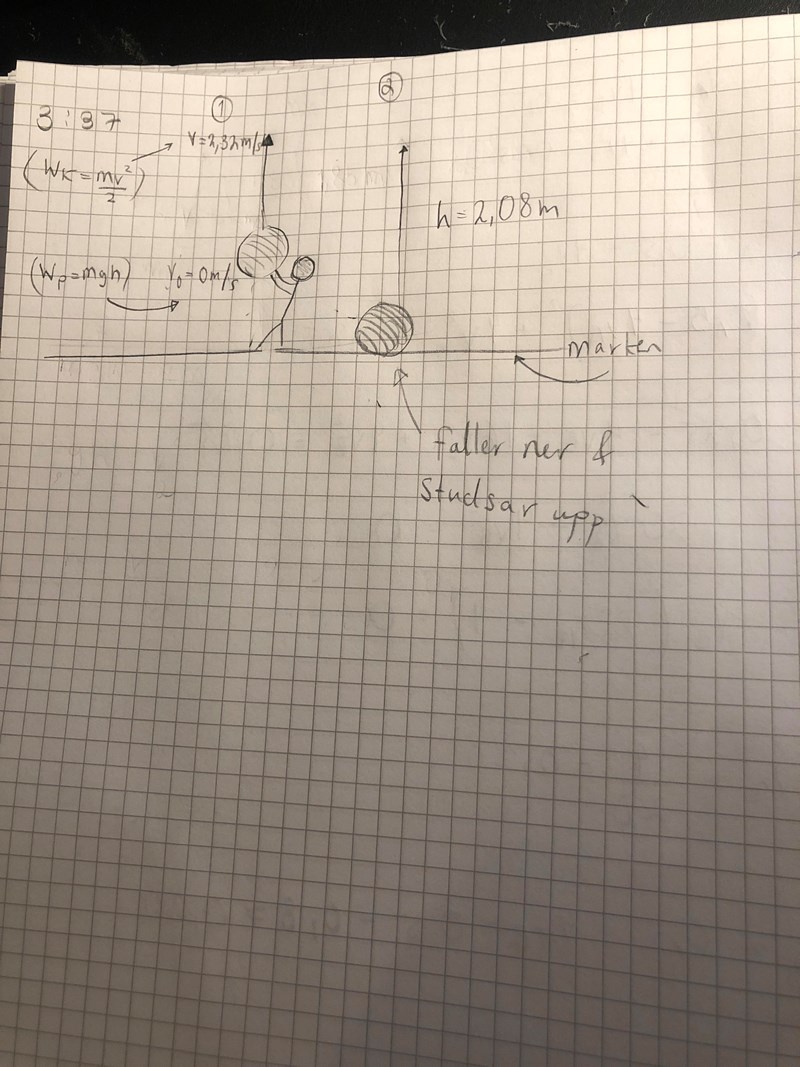 3:37
①
②
v=2,32m/s
(Wk=mv²/2)
h=2,08m
(Wp=mgh)
V₀=0m/s
marken
faller ner &
studsar upp